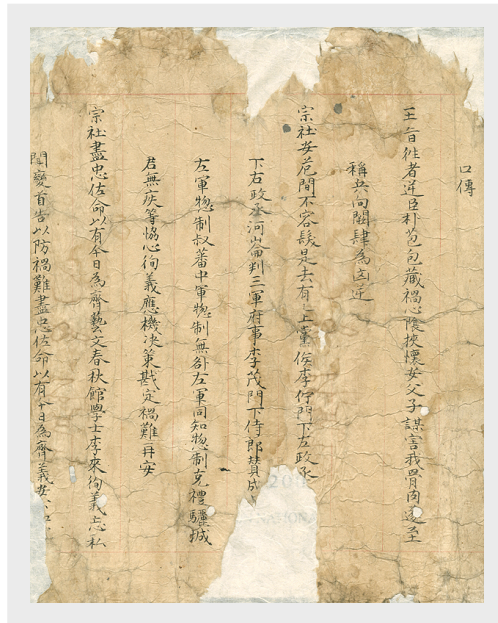 口傳
王旨徃者逆臣朴苞包藏禍心隂挾懷安父子謀害我骨肉遂至
稱兵向闕肆爲凶逆
宗社安危間不容髮是去有上黨侯李佇門下左政丞
下右政丞河崙判三軍府事李茂門下侍郎賛成
左軍摠制叔蕃中軍摠制無咎左軍同知摠制克禮驪城
君無疾等恊心徇義應機決策戡定禍難再安
宗社盡忠佐命以有今日爲齊藝文春秋館學士李來徇義忘私
聞變首告以防禍難盡忠佐命以有今日爲齊義安